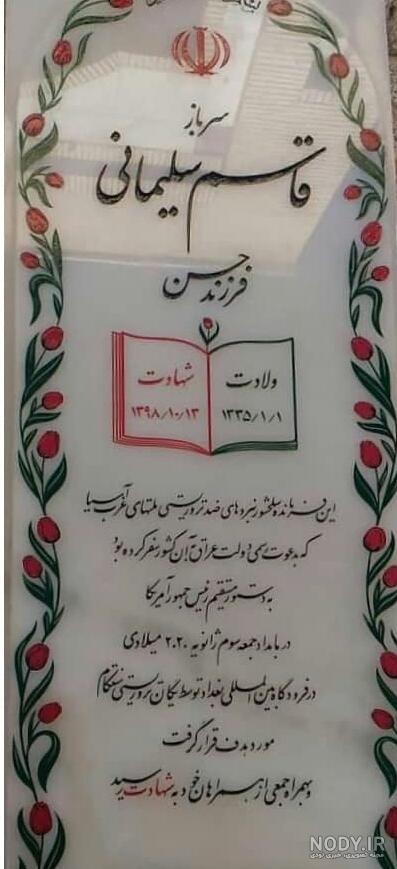 سرباز
قاسم سلیمانی
فرزند حسن
ولادت
۱۳۳۵/۱/۱
شهادت
۱۳۹۸/۱۰/۱۳
این فرمانده سلحشور نبردهای ضد تروریستی ملتهای غرب آسیا
که به دعوت رسمی دولت عراق به آن کشور سفر کرده بود
به دستور مستقیم رئیس جمهور آمریکا
در بامداد جمعه سوم ژانویه ۲۰۲۰ میلادی
در فرودگاه بین المللی بغداد توسط یگان تروریستی سنتکام
مورد هدف قرار گرفت
و بهمراه جمعی از همراهان خود به شهادت رسید
NODY.IR
مجله تصویری، خبری نودی